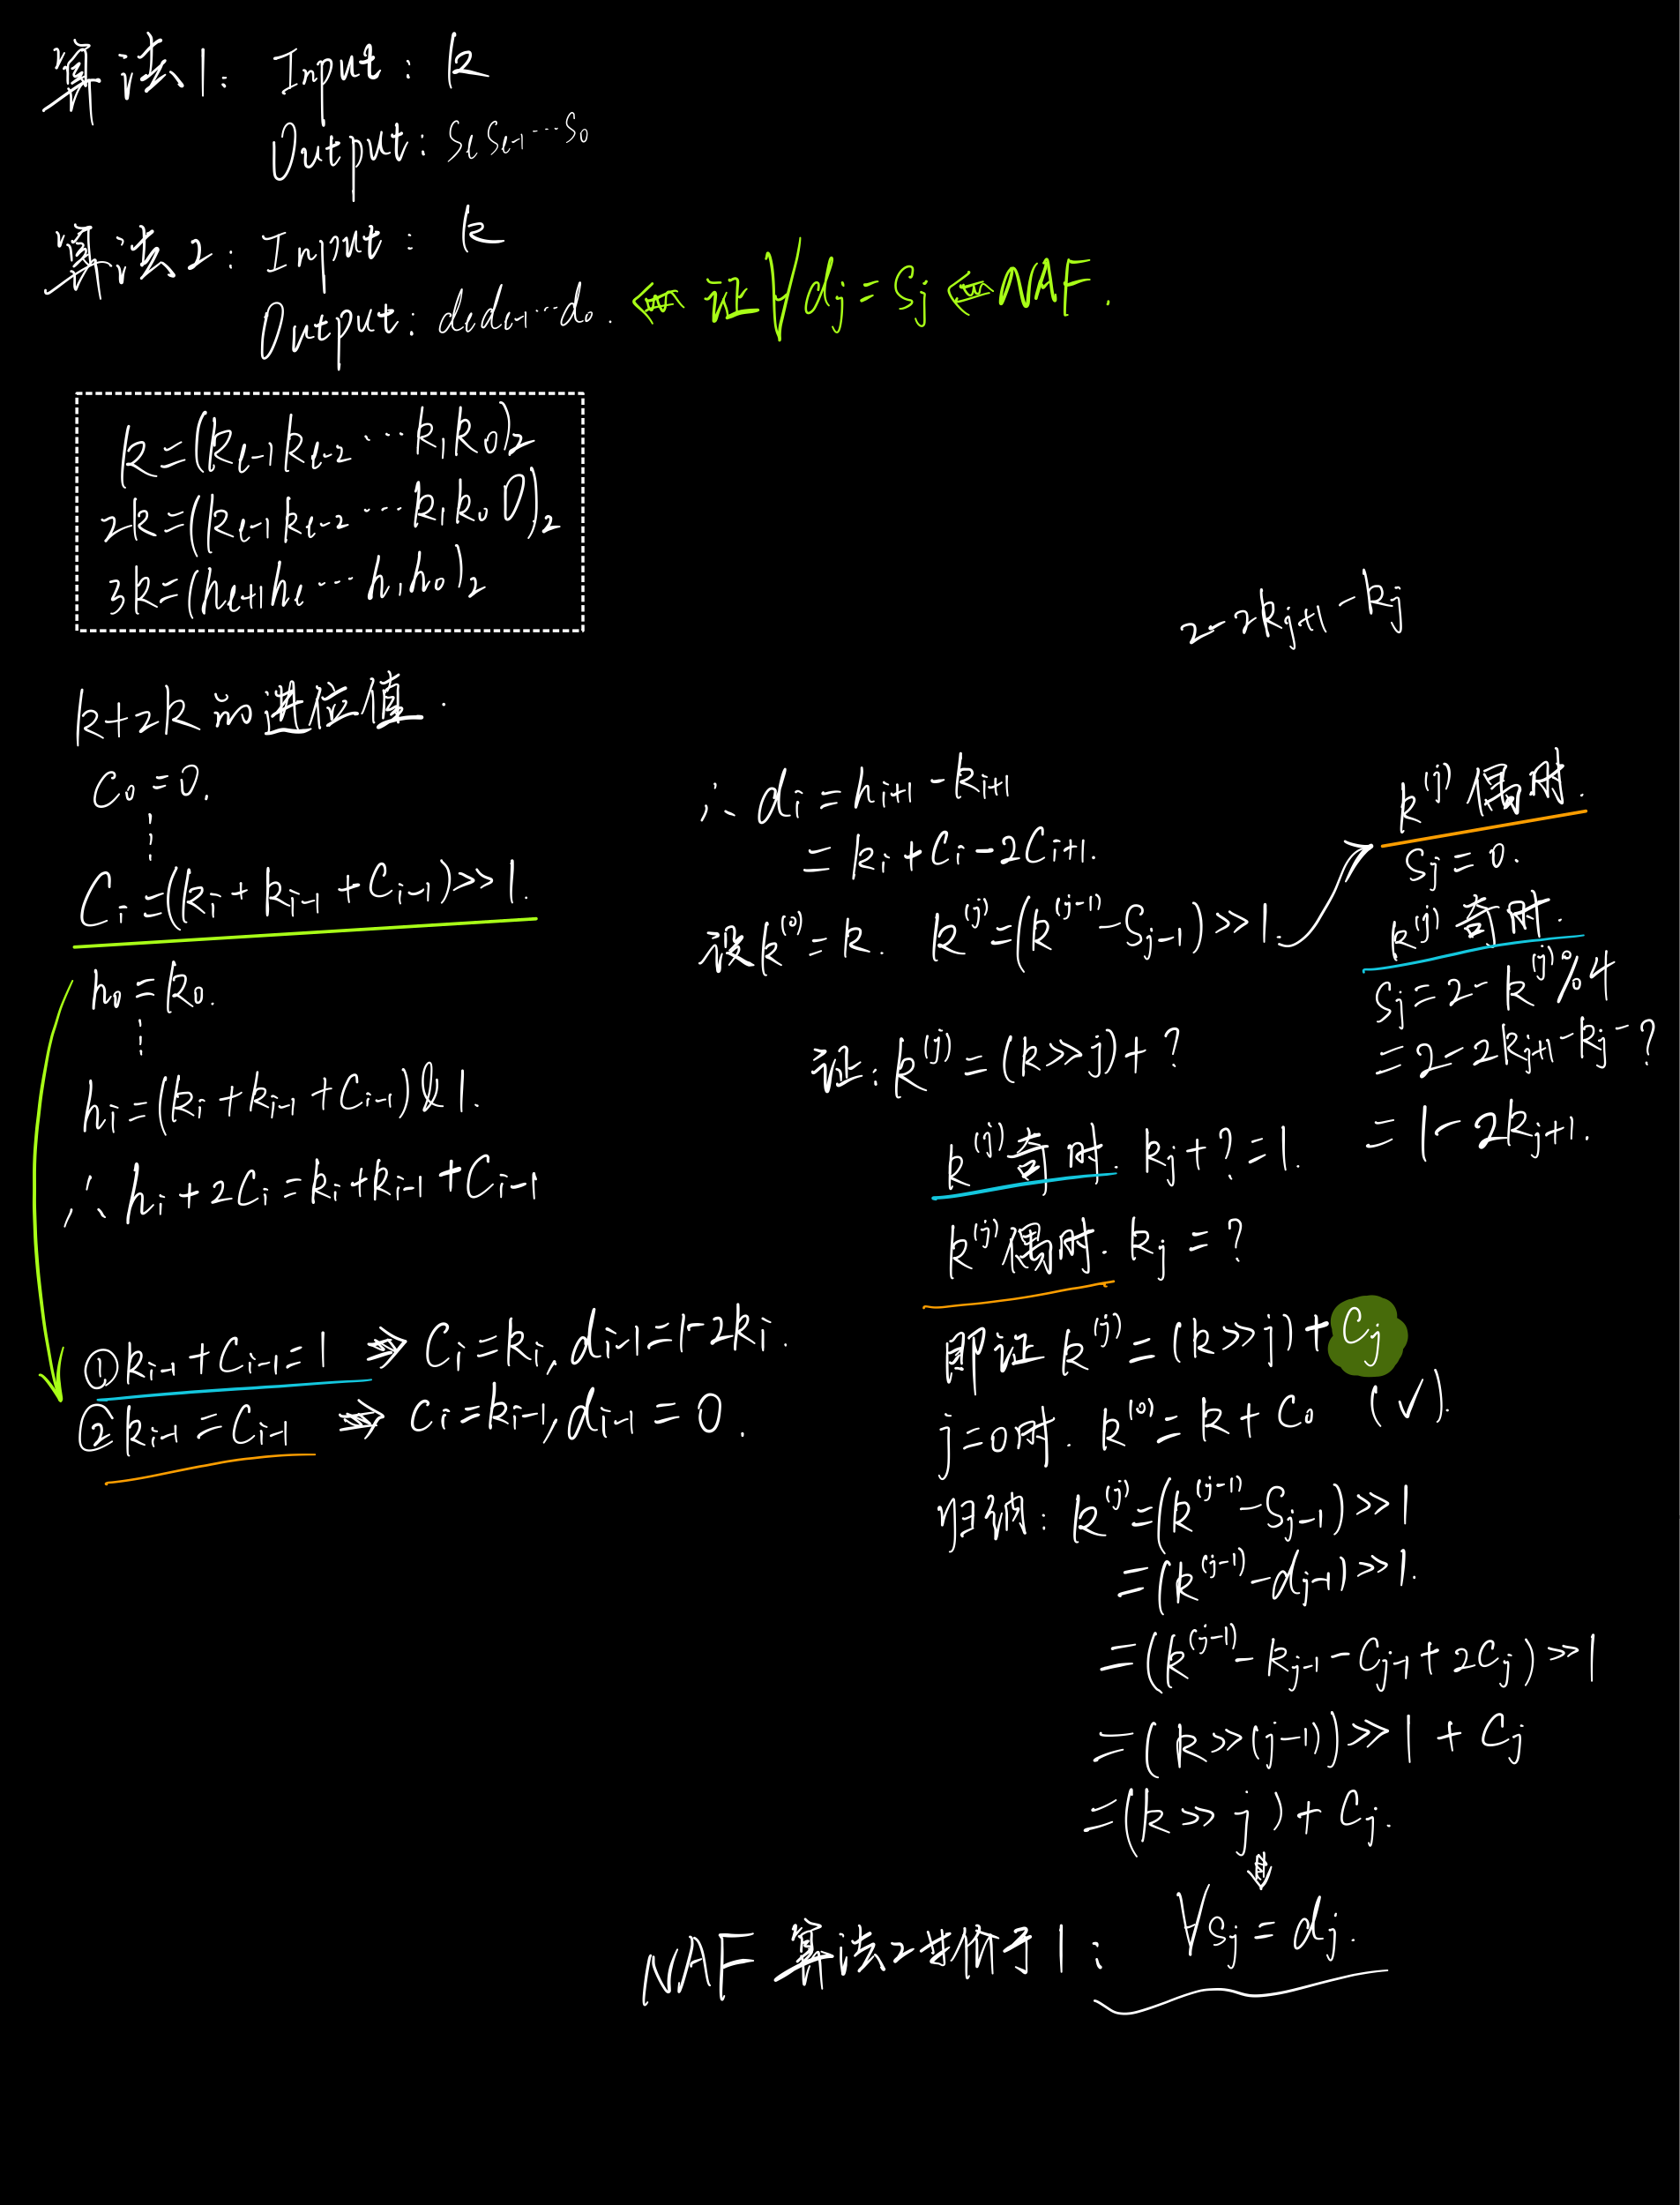 算法1: Input: k
Output: sₗsₗ₋₁…s₀
算法2: Input: k
Output: dₗdₗ₋₁…d₀. ⇐ 证∀dⱼ=Sⱼ ⇐ NAF.
k=(kₗ₋₁kₗ₋₂…k₁k₀)₂
2k=(kₗ₋₁kₗ₋₂…k₁k₀0)₂
3k=(hₗ₊₁hₗ…h₁h₀)₂
k+2k的进位值.
C₀=0.
⋮
Cᵢ=(kᵢ+kᵢ₋₁+Cᵢ₋₁)>>1.
h₀=k₀.
⋮
hᵢ=(kᵢ+kᵢ₋₁+Cᵢ₋₁)&1.
∴hᵢ+2Cᵢ=kᵢ+kᵢ₋₁+Cᵢ₋₁
①kᵢ₋₁+Cᵢ₋₁=1 ⇒ Cᵢ=kᵢ, dᵢ₋₁=1-2kᵢ.
②kᵢ₋₁=Cᵢ₋₁ ⇒ Cᵢ=kᵢ₋₁, dᵢ₋₁=0.
∴dᵢ=hᵢ₊₁-kᵢ₊₁
=kᵢ+Cᵢ-2Cᵢ₊₁.
设k⁽⁰⁾=k. k⁽ʲ⁾=(k⁽ʲ⁻¹⁾-Sⱼ₋₁)>>1.
2-2kⱼ₊₁-kⱼ
k⁽ʲ⁾偶时.
Sⱼ=0.
k⁽ʲ⁾奇时.
Sⱼ=2-k⁽ʲ⁾%4
=2-2kⱼ₊₁-kⱼ-?
=1-2kⱼ₊₁.
证:k⁽ʲ⁾=(k>>j)+?
k⁽ʲ⁾奇时. kⱼ+?=1.
k⁽ʲ⁾偶时. kⱼ=?
即证 k⁽ʲ⁾=(k>>j)+Cⱼ
j=0时. k⁽⁰⁾=k+C₀ (✓).
归纳: k⁽ʲ⁾=(k⁽ʲ⁻¹⁾-Sⱼ₋₁)>>1
=(k⁽ʲ⁻¹⁾-dⱼ₋₁)>>1.
=(k⁽ʲ⁻¹⁾-kⱼ₋₁-Cⱼ₋₁+2Cⱼ)>>1
=(k>>(j-1))>>1+Cⱼ
=(k>>j)+Cⱼ.
⇓
NAF 算法2等价于1: ∀sⱼ=dⱼ.